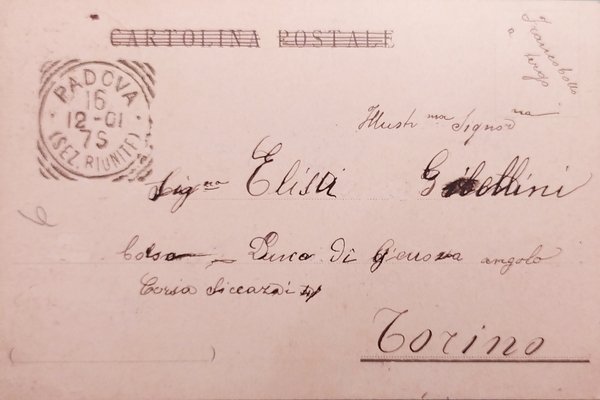 CARTOLINA POSTALE
Francobollo
a tergo
PADOVA
16
12-01
7S
(SEZ. RIUNITE)
Illustr ma Signora
Sigra Elisa Gibellini
Corso Duca di Genova angolo
Corso Siccardi
Torino
6